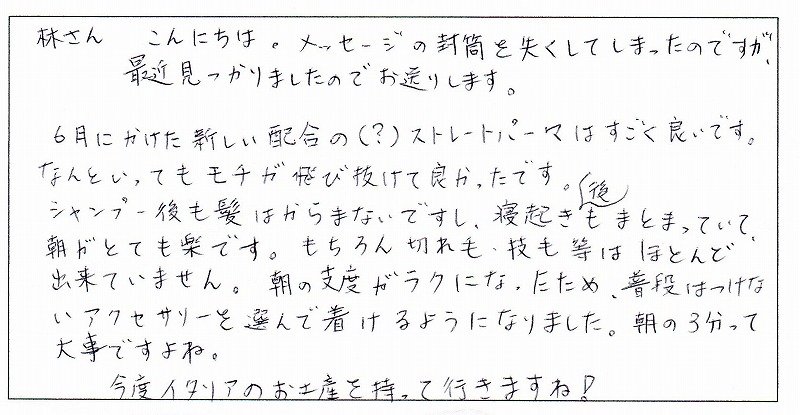 林さん こんにちは。メッセージの封筒を失くしてしまったのですが、
最近見つかりましたのでお送りします。
6月にかけた新しい配合の(?)ストレートパーマはすごく良いです。
なんといってもモチが飛び抜けて良かったです。
シャンプー後も髪はからまないですし、寝起き後もまとまっていて、
朝がとても楽です。もちろん切れも、枝も等はほとんど
出来ていません。朝の支度がラクになったため、普段はつけな
いアクセサリーを選んで着けるようになりました。朝の3分って
大事ですよね。
今度イタリアのお土産を持って行きますね!